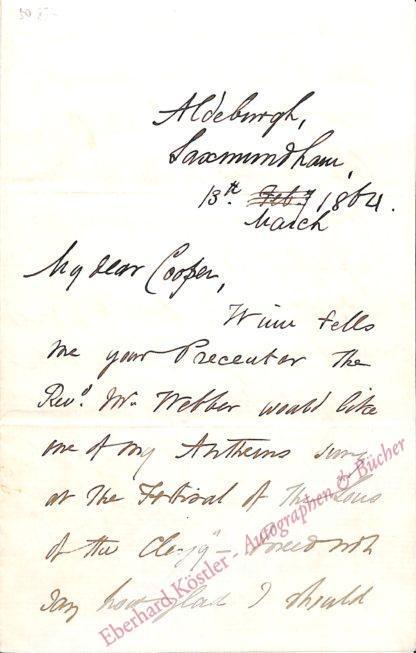 Aldeburgh,
Saxmundham,
13th. Feby 1864.
March
My dear Cooper,
Winn tells
me your Precentor the
Revd. Mr. Webber would like
one of my Anthems sung
at the Festival of the "Sons
of the Clergy" - I need not
say how glad I should
Eberhard Köstler - Autographen & Bücher